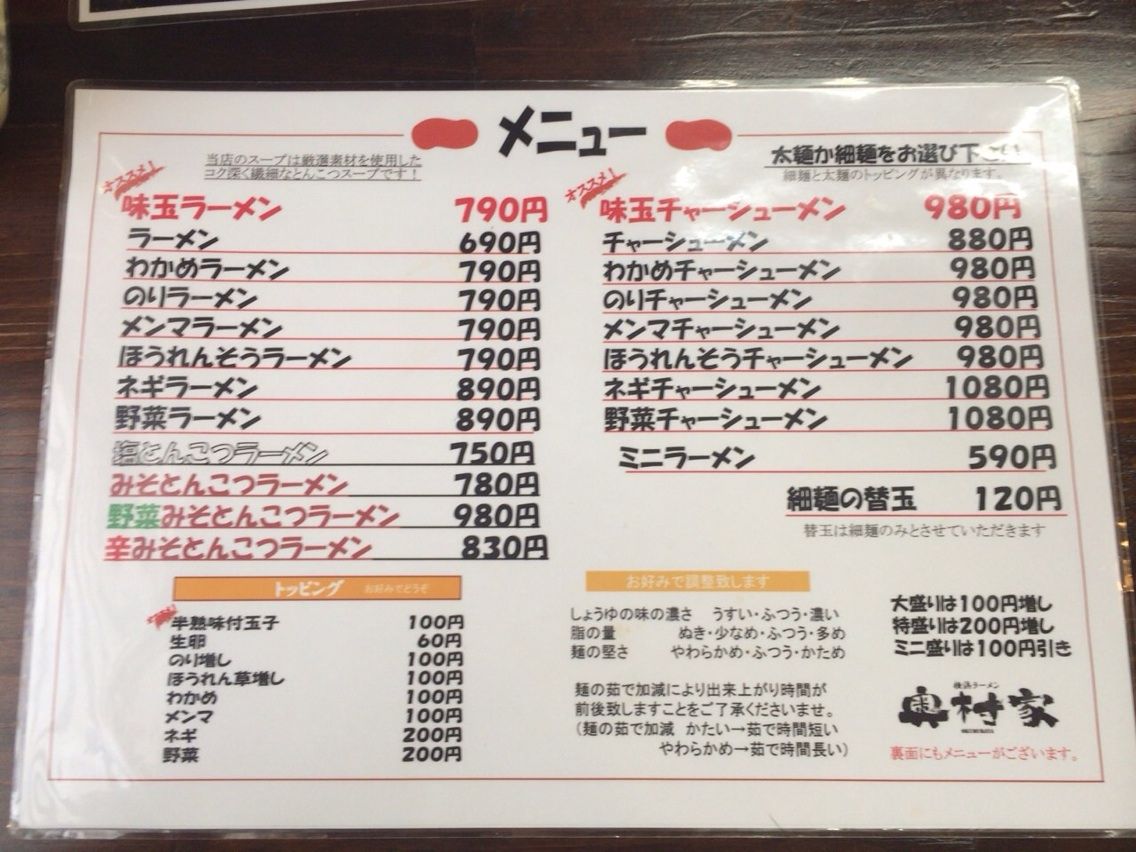 メニュー
当店のスープは厳選素材を使用した
コク深く繊細なとんこつスープです!
オススメ!
味玉ラーメン 790円
ラーメン 690円
わかめラーメン 790円
のりラーメン 790円
メンマラーメン 790円
ほうれんそうラーメン 790円
ネギラーメン 890円
野菜ラーメン 890円
塩とんこつラーメン 750円
みそとんこつラーメン 780円
野菜みそとんこつラーメン 980円
辛みそとんこつラーメン 830円
太麺か細麺をお選び下さい
細麺と太麺のトッピングが異なります。
オススメ!
味玉チャーシューメン 980円
チャーシューメン 880円
わかめチャーシューメン 980円
のりチャーシューメン 980円
メンマチャーシューメン 980円
ほうれんそうチャーシューメン 980円
ネギチャーシューメン 1080円
野菜チャーシューメン 1080円
ミニラーメン 590円
細麺の替玉 120円
替玉は細麺のみとさせていただきます
トッピング お好みでどうぞ
半熟味付玉子 100円
生卵 60円
のり増し 100円
ほうれん草増し 100円
わかめ 100円
メンマ 100円
ネギ 200円
野菜 200円
お好みで調整致します
しょうゆの味の濃さ うすい・ふつう・濃い
脂の量 ぬき・少なめ・ふつう・多め
麺の堅さ やわらかめ・ふつう・かため
麺の茹で加減により出来上がり時間が
前後致しますことをご了承くださいませ。
(麺の茹で加減 かたい→茹で時間短い
やわらかめ→茹で時間長い)
大盛りは100円増し
特盛りは200円増し
ミニ盛りは100円引き
横浜ラーメン
奥村家
裏面にもメニューがございます。